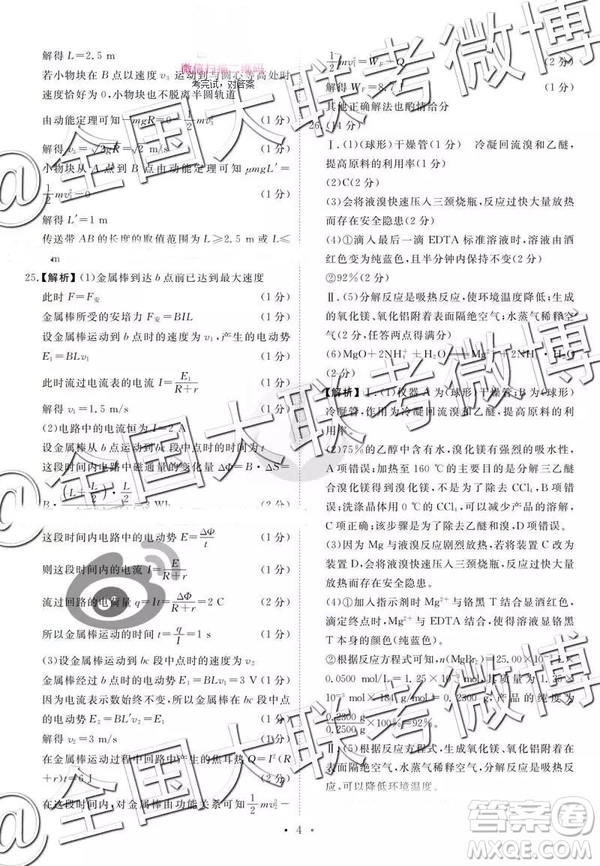 解得 L=2.5 m (1分)
若小物块在 B 点以速度 v₃ 运动到与圆心等高处时
速度恰好为 0,小物块也不脱离半圆轨道
由动能定理可知 −mgR=0− (1分)
解得 (1分)
小物块从 A 点到 B 点,由动能定理可知 μmgL′=
(1分)
解得 L′=1 m (1分)
传送带 AB 的长度的取值范围为 L≥2.5 m 或 L≤
m
25.【解析】(1)金属棒到达 b 点前已达到最大速度
此时 F=F安 (1分)
金属棒所受的安培力 F=BIL (1分)
设金属棒运动到 b 点时的速度为 v₁,产生的电动势
E₁=BLv₁ (1分)
此时流过电流表的电流 I=E₁/(R+r) (1分)
解得 v₁=1.5 m/s (1分)
(2)电路中的电流恒为 I=2 A
设金属棒运动到 bc 段中点时的时间为 t
这段时间内电路中磁通量的变化 ΔΦ=B·ΔS=
(2分)
这段时间内电路中的电动势 E=ΔΦ/t (1分)
则这段时间内的电流 I=E/(R+r) (1分)
流过回路的电荷量 q=It=ΔΦ/(R+r)=2 C (1分)
金属棒的运动时间 t=q/I=1 s (1分)
(3)设金属棒运动到 bc 段中点时的速度为 v₂
金属棒运动到 b 点时的电动势 E₁=BLv₁=3 V(1分)
因为电流表示数始终不变,所以金属棒在 bc 段中点
的电动势 E₁=BL′v₂=E₁ (1分)
解得 v₂=3 m/s (2分)
在金属棒运动过程中回路中产生的焦耳热 Q=I²(R
+r)t=6 J (2分)
在这段时间内,对金属棒由功能关系可知
=W_F+Q (2分)
解得 W_F=8.7 J (1分)
其他正确解法也酌情给分
26.(14分)
Ⅰ.(1)(球形)干燥管(1分) 冷凝回流溴和乙醚,
提高原料的利用率(1分)
(2)C(2分)
(3)会将液溴快速压入三颈烧瓶,反应过快大量放热
而存在安全隐患(2分)
(4)①滴入最后一滴 EDTA 标准溶液时,溶液由酒
红色变为纯蓝色,且半分钟内不变色(2分)
②92%(2分)
Ⅱ.(5)分解反应是吸热反应,使环境温度降低,生成
的氧化镁、氧化铝附着表面隔绝空气;水蒸气稀释空
气(2分)
(6)MgO+2NH₄⁺+H₂O=Mg²⁺+2NH₃·H₂O
(2分)
【解析】Ⅰ.(1)仪器 A 为(球形)干燥管;B 为(球形)
冷凝管,作用为冷凝回流溴和乙醚,提高原料的利
用率。
(2)75%的乙醇中含有水,溴化镁有强烈的吸水性,
A 项错误;加热至 160 ℃ 的主要目的是分解三乙醚
合溴化镁得到溴化镁,不是为了除去苯,B 项
错误;洗涤晶体用 0 ℃ 的 CCl₄,可以减少产品的溶
解,C 项正确;该步骤是为了除去乙醚和溴,D 项错误。
(3)因为 Mg 与液溴反应剧烈放热,若将装置 B 改为
装置 C,会将液溴快速压入三颈烧瓶,反应过快大量
放热而存在安全隐患。
(4)①加入指示剂时 Mg²⁺ 与铬黑 T 形成酒红色,
滴定终点时,Mg²⁺ 与 EDTA 结合,溶液显铬黑
T 本来的颜色(纯蓝色)。
②根据反应方程式可知,n(MgBr₂)=25.00×10⁻³ L×
0.0500 mol/L=1.25×10⁻³ mol,m=1.25×
10⁻³ mol×184 g/mol=0.2300 g,所以产品的纯度为
0.2300/0.2500 g×100%=92%。
Ⅱ.(5)根据反应方程式,生成氧化镁、氧化铝附着在
表面,隔绝空气,水蒸气稀释空气,分解反应吸热,可
以降低环境温度。
·4·
微信扫描二维码
考完试,对答案
@全国大联考微博
@全国大联考微博
@全国大联考微博
答案圈
MXQE.COM